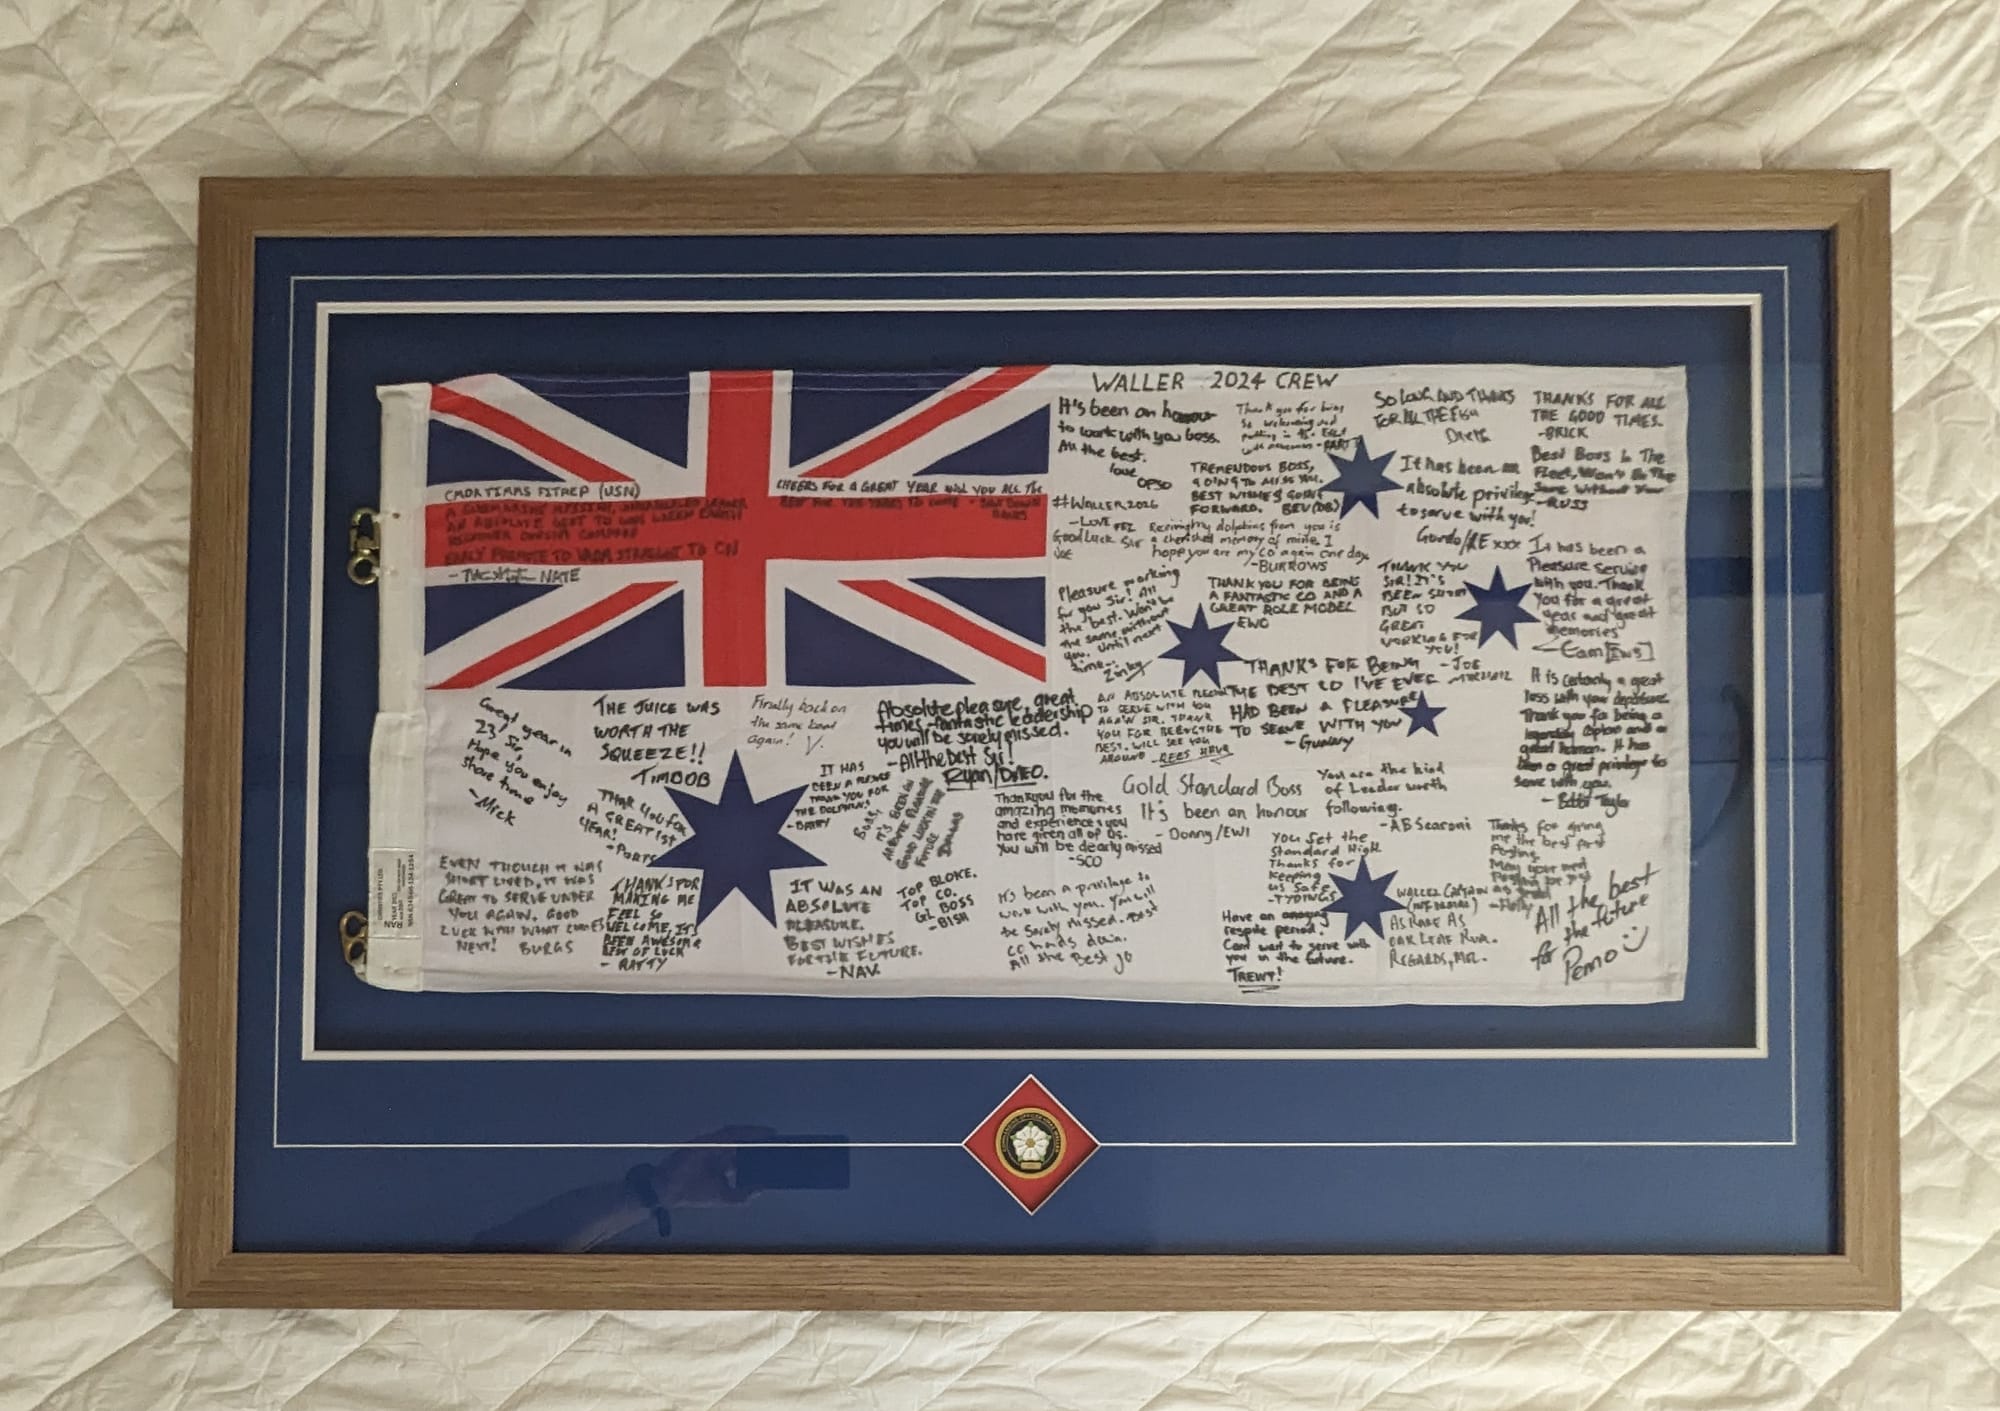 WALLER 2024 CREW
It's been an honour
to work with you boss.
All the best.
love
OPSO
Thank you for being
so welcoming and
putting in the
SO LONG AND THANKS
FOR ALL THE FISH
THANKS FOR ALL
THE GOOD TIMES.
-BRICK
TREMENDOUS BOSS,
GOING TO MISS YOU.
BEST WISHES GOING
FORWARD. BEV(DB)
It has been an
absolute privilege
to serve with you!
Gordo/RE xxx
Best Boss In The
Fleet, Won't Be The
Same Without You
-RUSS
(USN)
AN ABSOLUTE
- NATE
CHEERS FOR A GREAT YEAR AND YOU ALL THE
BEST FOR THE YEARS TO COME -
#WALLER2026
-LOVE FEZ
Good Luck Sir
JOE
Receiving dolphins from you is
a cherished memory of mine. I
hope you are my CO again one day.
-BURROWS
Pleasure working
for you Sir! All
the best. Won't be
the same without
you. Until next
time--
THANK YOU FOR BEING
A FANTASTIC CO AND A
GREAT ROLE MODEL
EWO
THANK YOU
SIR! IT'S
BEEN SHORT
BUT SO
GREAT
WORKING FOR
YOU!
-JOE
It has been a
Pleasure serving
with you. Thank
you for a great
year and great
memories
-Cam [EWS]
THANKS FOR BEING
THE BEST CO I'VE EVER
HAD BEEN A PLEASURE
TO SERVE WITH YOU
- Gunny
AN ABSOLUTE PLEASURE
TO SERVE WITH YOU
AGAIN SIR. THANK
YOU FOR BEING THE
BEST. WILL SEE YOU
AROUND -REES
It is certainly a great
loss with your departure.
Thank you for being a
legendary Captain and a
great human. It has
been a great privilege to
serve with you.
- Bobbi Taylor
Great year in
23 Sir,
Hope you enjoy
shore time
-Mick
THE JUICE WAS
WORTH THE
SQUEEZE!!
TIMDOB
Finally back on
the same boat
again! V.
Absolute pleasure, great
times - fantastic leadership
you will be sorely missed.
-All the best Sir!
Ryan/DMEO.
THANK YOU FOR
A GREAT 1st
YEAR!
-PORTS
IT HAS
BEEN A
THANK YOU FOR
THE DOLPHINS
BOSS,
IT'S BEEN AN
ABSOLUTE PLEASURE
GOOD LUCK IN THE
FUTURE
Thankyou for the
amazing memories
and experiences you
have given all of us.
You will be dearly missed
-SCO
Gold Standard Boss
It's been an honour
- Donny/EW1
You are the kind
of Leader worth
following.
-AB Searoni
EVEN THOUGH IT WAS
SHORT LIVED, IT WAS
GREAT TO SERVE UNDER
YOU AGAIN. GOOD
LUCK WITH WHAT COMES
NEXT! BURGS
THANKS FOR
MAKING ME
FEEL SO
WELCOME, IT'S
BEEN AWESOME
BEST OF LUCK
- RATTY
IT WAS AN
ABSOLUTE
PLEASURE.
BEST WISHES
FOR THE FUTURE.
-NAV.
TOP BLOKE.
TOP CO.
GL BOSS
-BISH
It's been a privilege to
work with you, you will
be sorely missed. Best
CO hands down.
All the Best Jo
You set the
Standard High
Thanks for
Keeping
us Safe
-TYDINGS
Have an amazing
respite period!
Cant wait to serve with
you in the future.
TREWY!
WALLER CAPTAIN
AS RARE AS
OAK LEAF
REGARDS,
Thanks for giving
me the best first
Posting.
May your next
Posting be just
as good
All the best
for the future
Penno